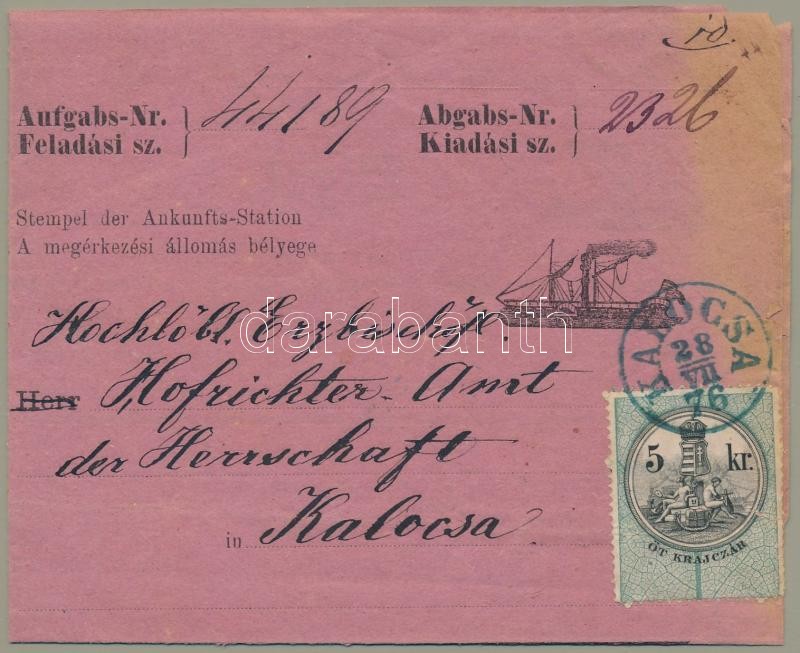 id.
Aufgabs-Nr. 44189 Abgabs-Nr. 2326
Feladási sz. Kiadási sz.
Stempel der Ankunfts-Station
A megérkezési állomás bélyege
Hochlöbl. Erzbischöfl.
Herr Hofrichter-Amt
der Herrschaft
in Kalocsa
KALOCSA
28
VII
76
5 kr.
ÖT KRAJCZÁR
darabanth